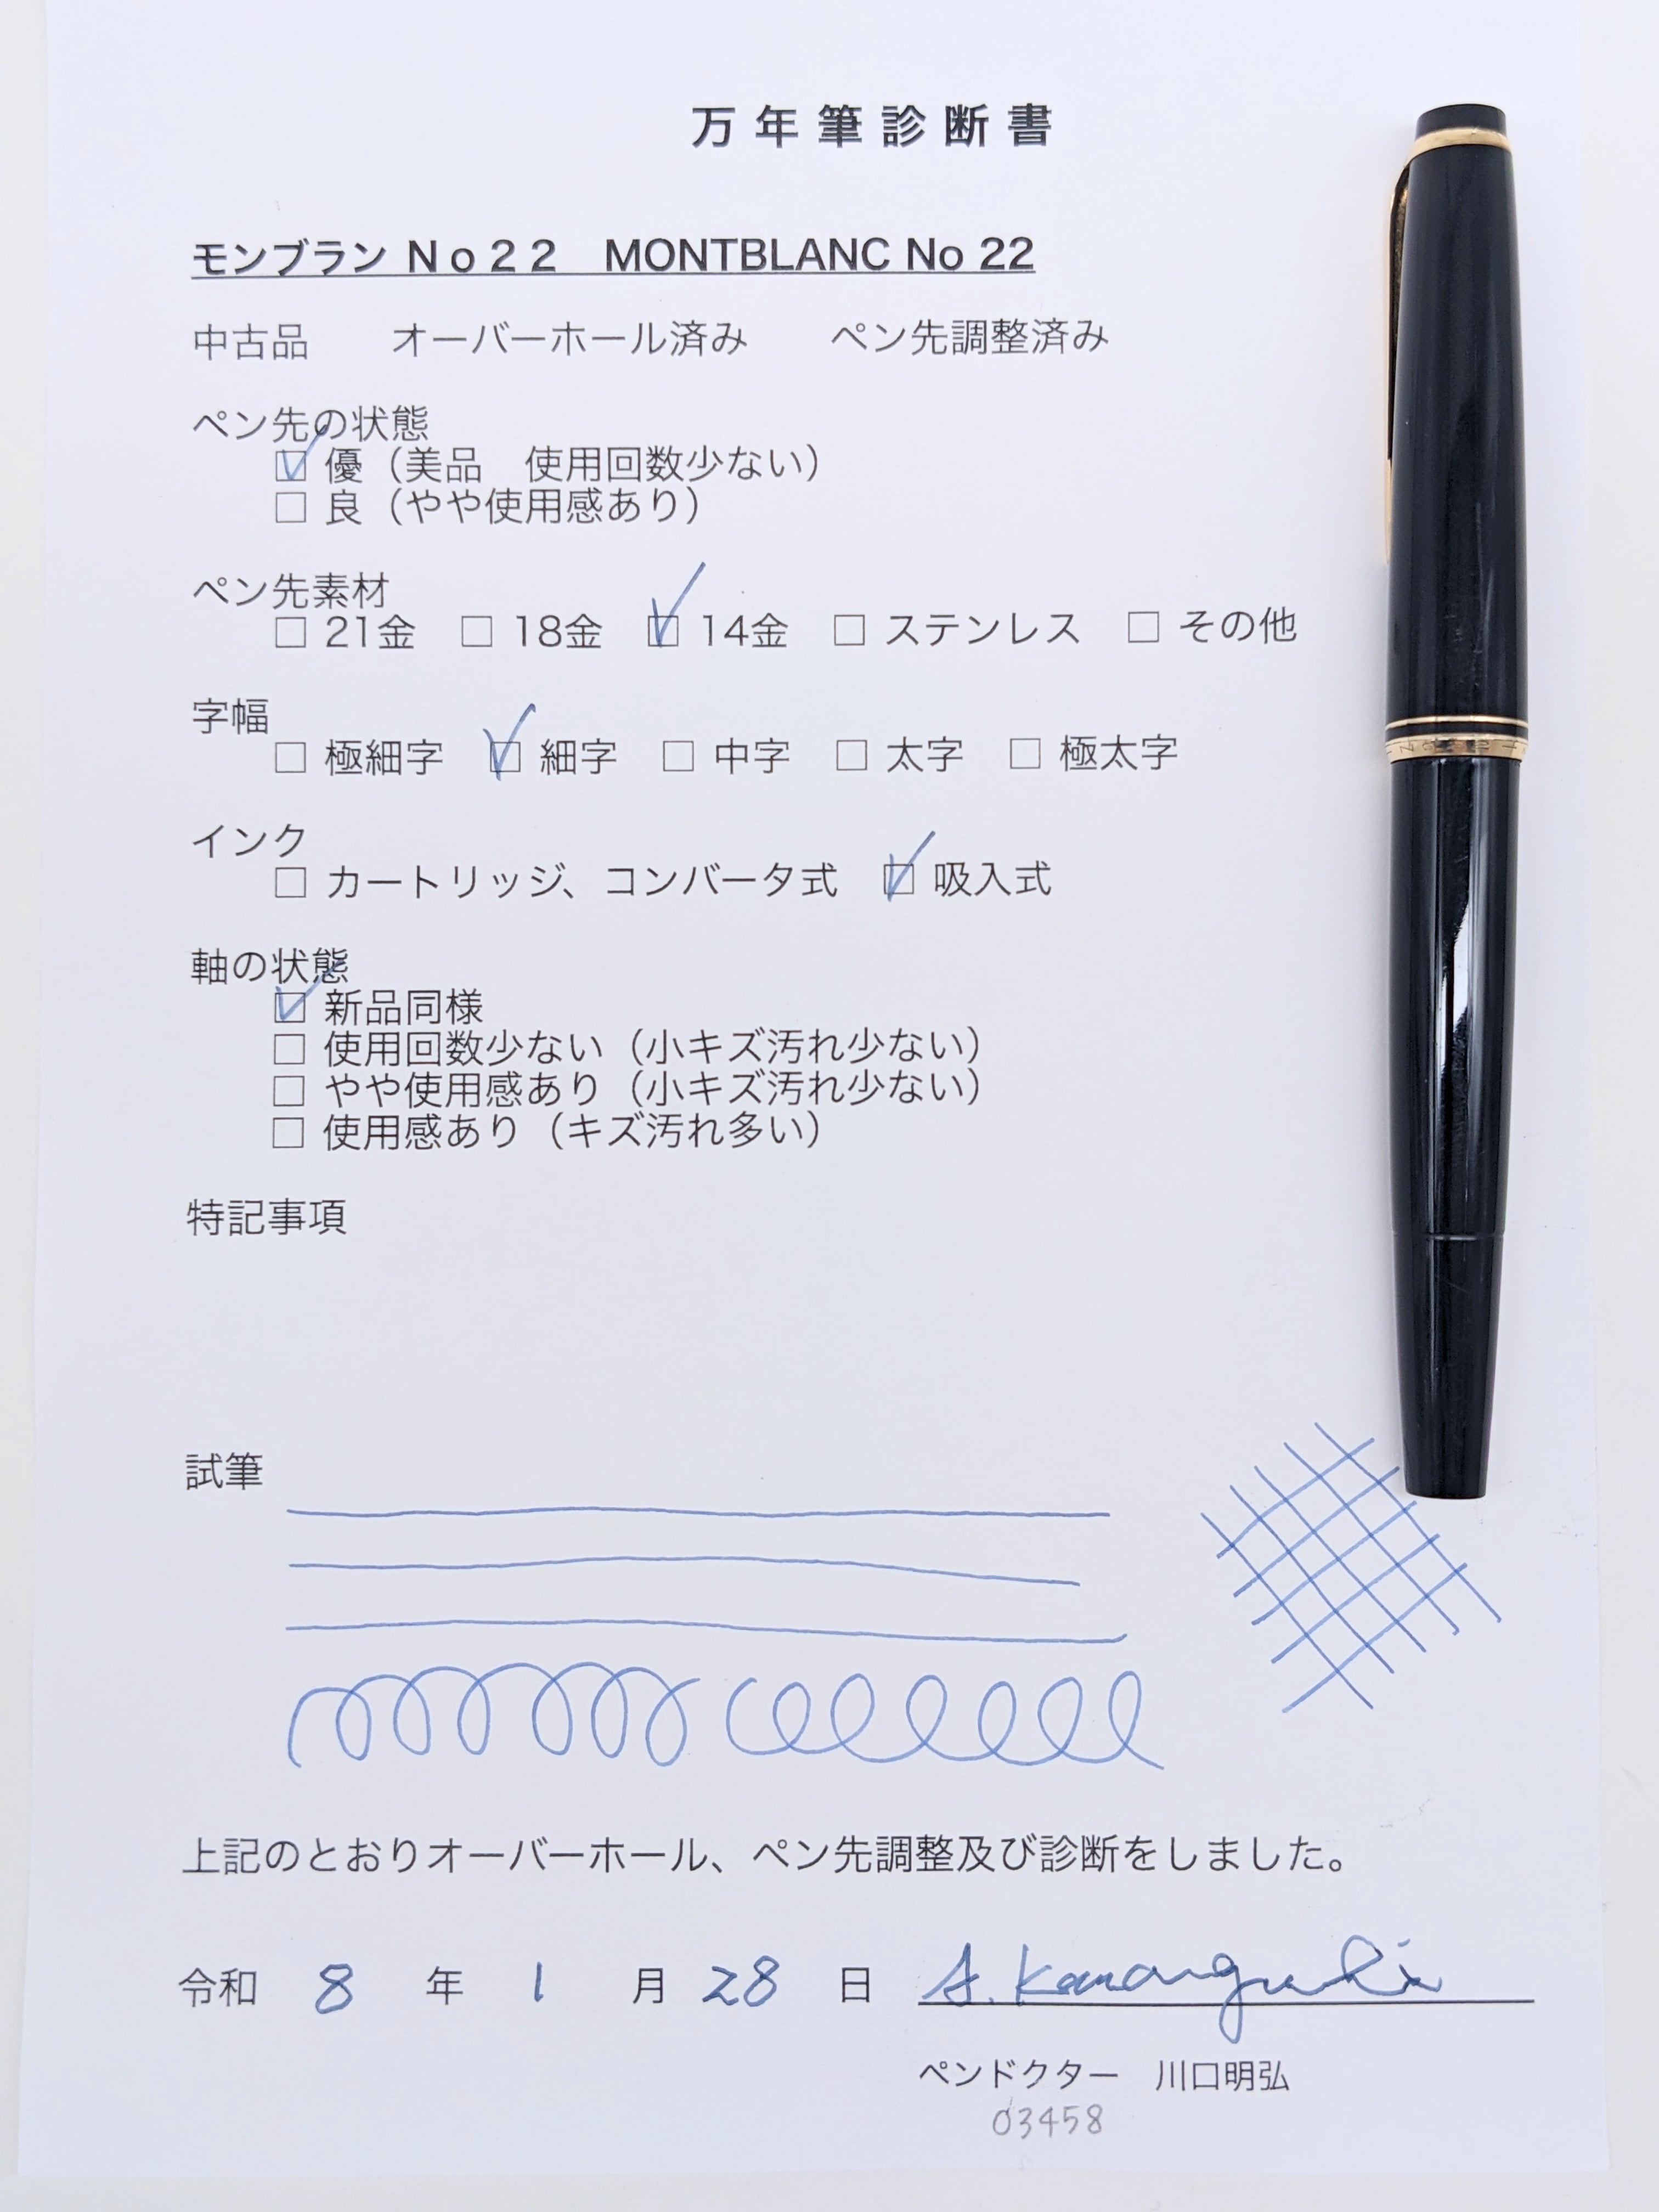 万年筆診断書
モンブラン Ｎｏ２２　MONTBLANC No 22
中古品　　オーバーホール済み　　ペン先調整済み
ペン先の状態
☑ 優（美品　使用回数少ない）
□ 良（やや使用感あり）
ペン先素材
□ 21金　□ 18金　☑ 14金　□ ステンレス　□ その他
字幅
□ 極細字　☑ 細字　□ 中字　□ 太字　□ 極太字
インク
□ カートリッジ、コンバータ式　☑ 吸入式
軸の状態
☑ 新品同様
□ 使用回数少ない（小キズ汚れ少ない）
□ やや使用感あり（小キズ汚れ少ない）
□ 使用感あり（キズ汚れ多い）
特記事項
試筆
上記のとおりオーバーホール、ペン先調整及び診断をしました。
令和 8 年 1 月 28 日 A. Kawaguchi
ペンドクター　川口明弘
03458